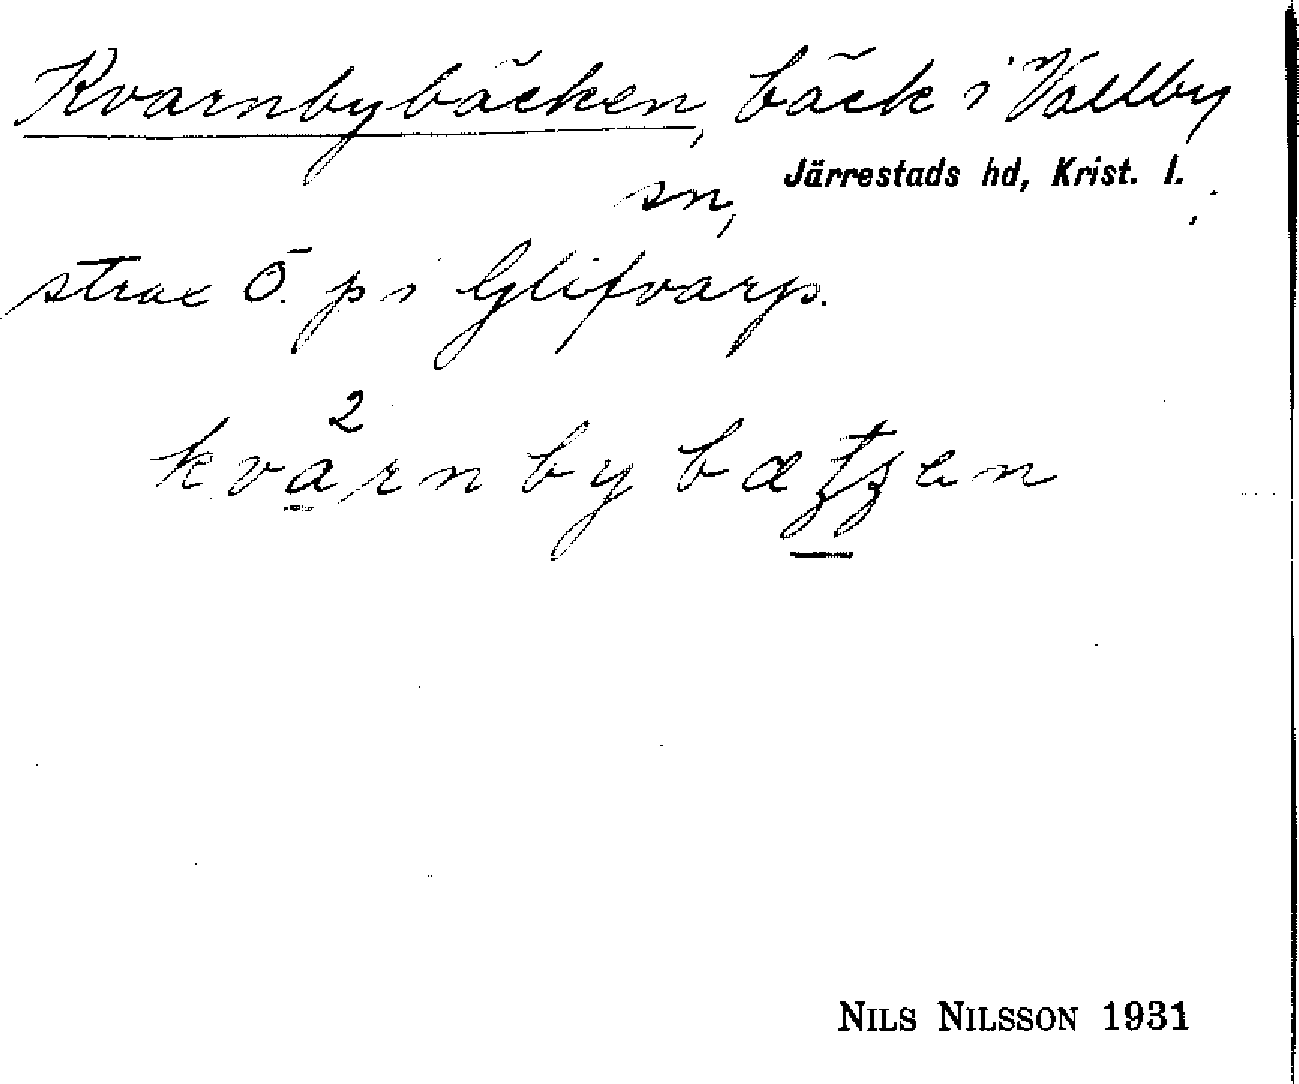 Kvarnbybäcken, bäck i Vallby
sn, Järrestads hd, Krist. l. ;
strax Ö. p i Glifvarp.
2
kvarnby bæ en
NILS NILSSON 1931